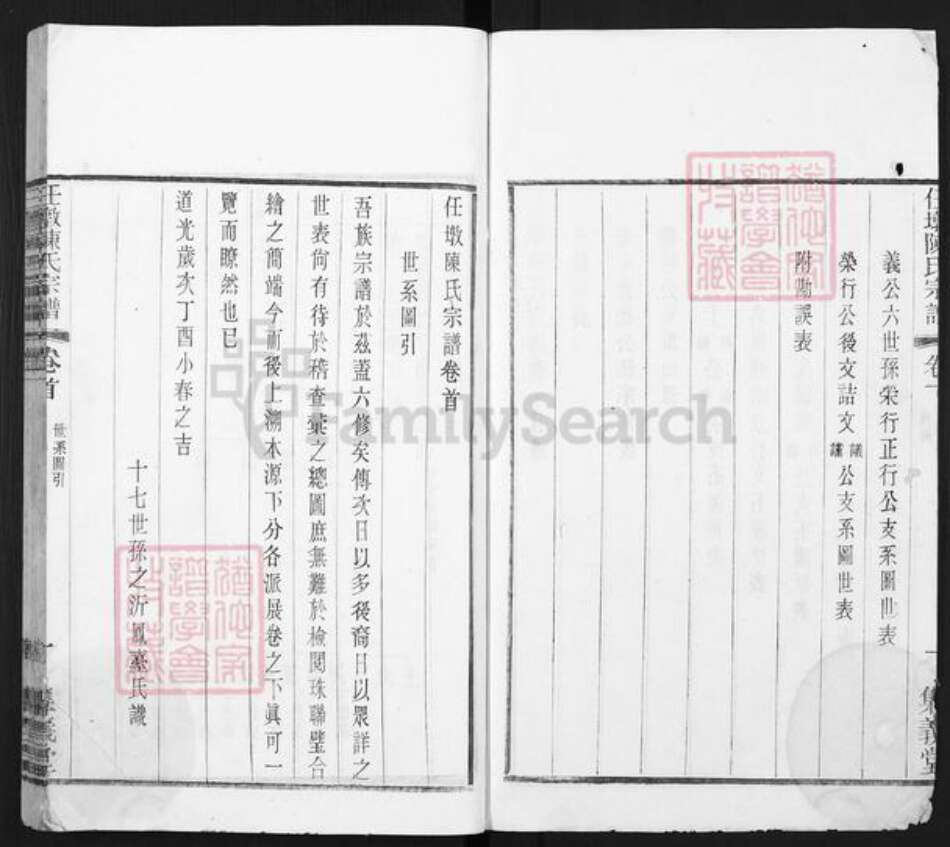 義公六世孫榮行正行公支系圖世表
榮行公後文喆文議謹公支系圖世表
附勘誤表
任墩陳氏宗譜
卷一
集義堂
任墩陳氏宗譜卷首
世系圖引
吾族宗譜於茲蓋六修矣傳次日以多後裔日以眾詳之
世表尙有待於稽查彙之總圖庶無難於檢閱珠聯璧合
繪之簡端今而後上溯木源下分各派展卷之下眞可一
覽而瞭然也已
道光歲次丁酉小春之吉
十七世孫之沂鳳臺氏識
任墩陳氏宗譜
卷首
世系圖引
一
集義堂
譜學會
FamilySearch